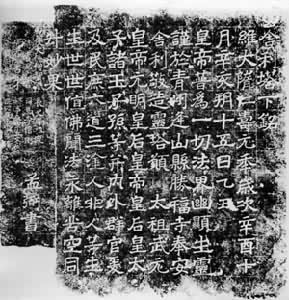 舍利塔下銘
維大隋仁壽元年歲次辛酉十
月辛亥朔十五日乙丑
皇帝普為一切法界幽顯生靈
謹於青州逢山縣勝福寺奉安
舍利敬造靈塔願 太祖武元
皇帝元明皇后皇帝皇后皇太
子諸王子孫等并內外群官爰
及民庶六道三塗人非人等生
生世世值佛聞法永離苦空同
升妙果
孟弼書